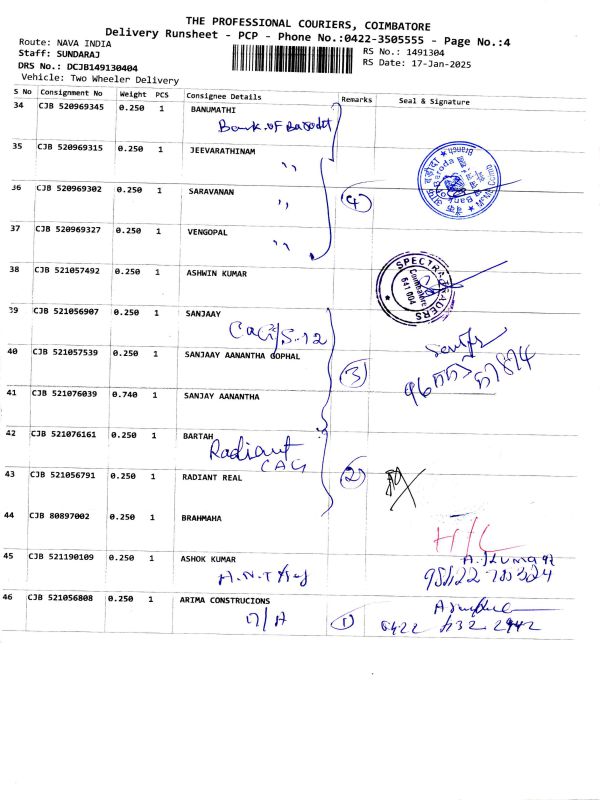 THE PROFESSIONAL COURIERS, COIMBATORE
Delivery Runsheet - PCP - Phone No.:0422-3505555 - Page No.:4
Route: NAVA INDIA
Staff: SUNDARAJ
DRS No.: DCJB149130404
Vehicle: Two Wheeler Delivery
RS No.: 1491304
RS Date: 17-Jan-2025
S No Consignment No Weight PCS Consignee Details Remarks Seal & Signature
34 CJB 520969345 0.250 1 BANUMATHI
Bank of Baroda
35 CJB 520969315 0.250 1 JEEVARATHINAM
,,
36 CJB 520969302 0.250 1 SARAVANAN
,, 4
37 CJB 520969327 0.250 1 VENGOPAL
,,
38 CJB 521057492 0.250 1 ASHWIN KUMAR
SPECTRA TRADERS
Coimbatore
641 004
39 CJB 521056907 0.250 1 SANJAAY
40 CJB 521057539 0.250 1 SANJAAY AANANTHA GOPHAL
3
41 CJB 521076039 0.740 1 SANJAY AANANTHA
42 CJB 521076161 0.250 1 BARTAH
Radiant
CAG
43 CJB 521056791 0.250 1 RADIANT REAL
2
44 CJB 80897002 0.250 1 BRAHMAHA
H/C
45 CJB 521190109 0.250 1 ASHOK KUMAR
46 CJB 521056808 0.250 1 ARIMA CONSTRUCIONS
1